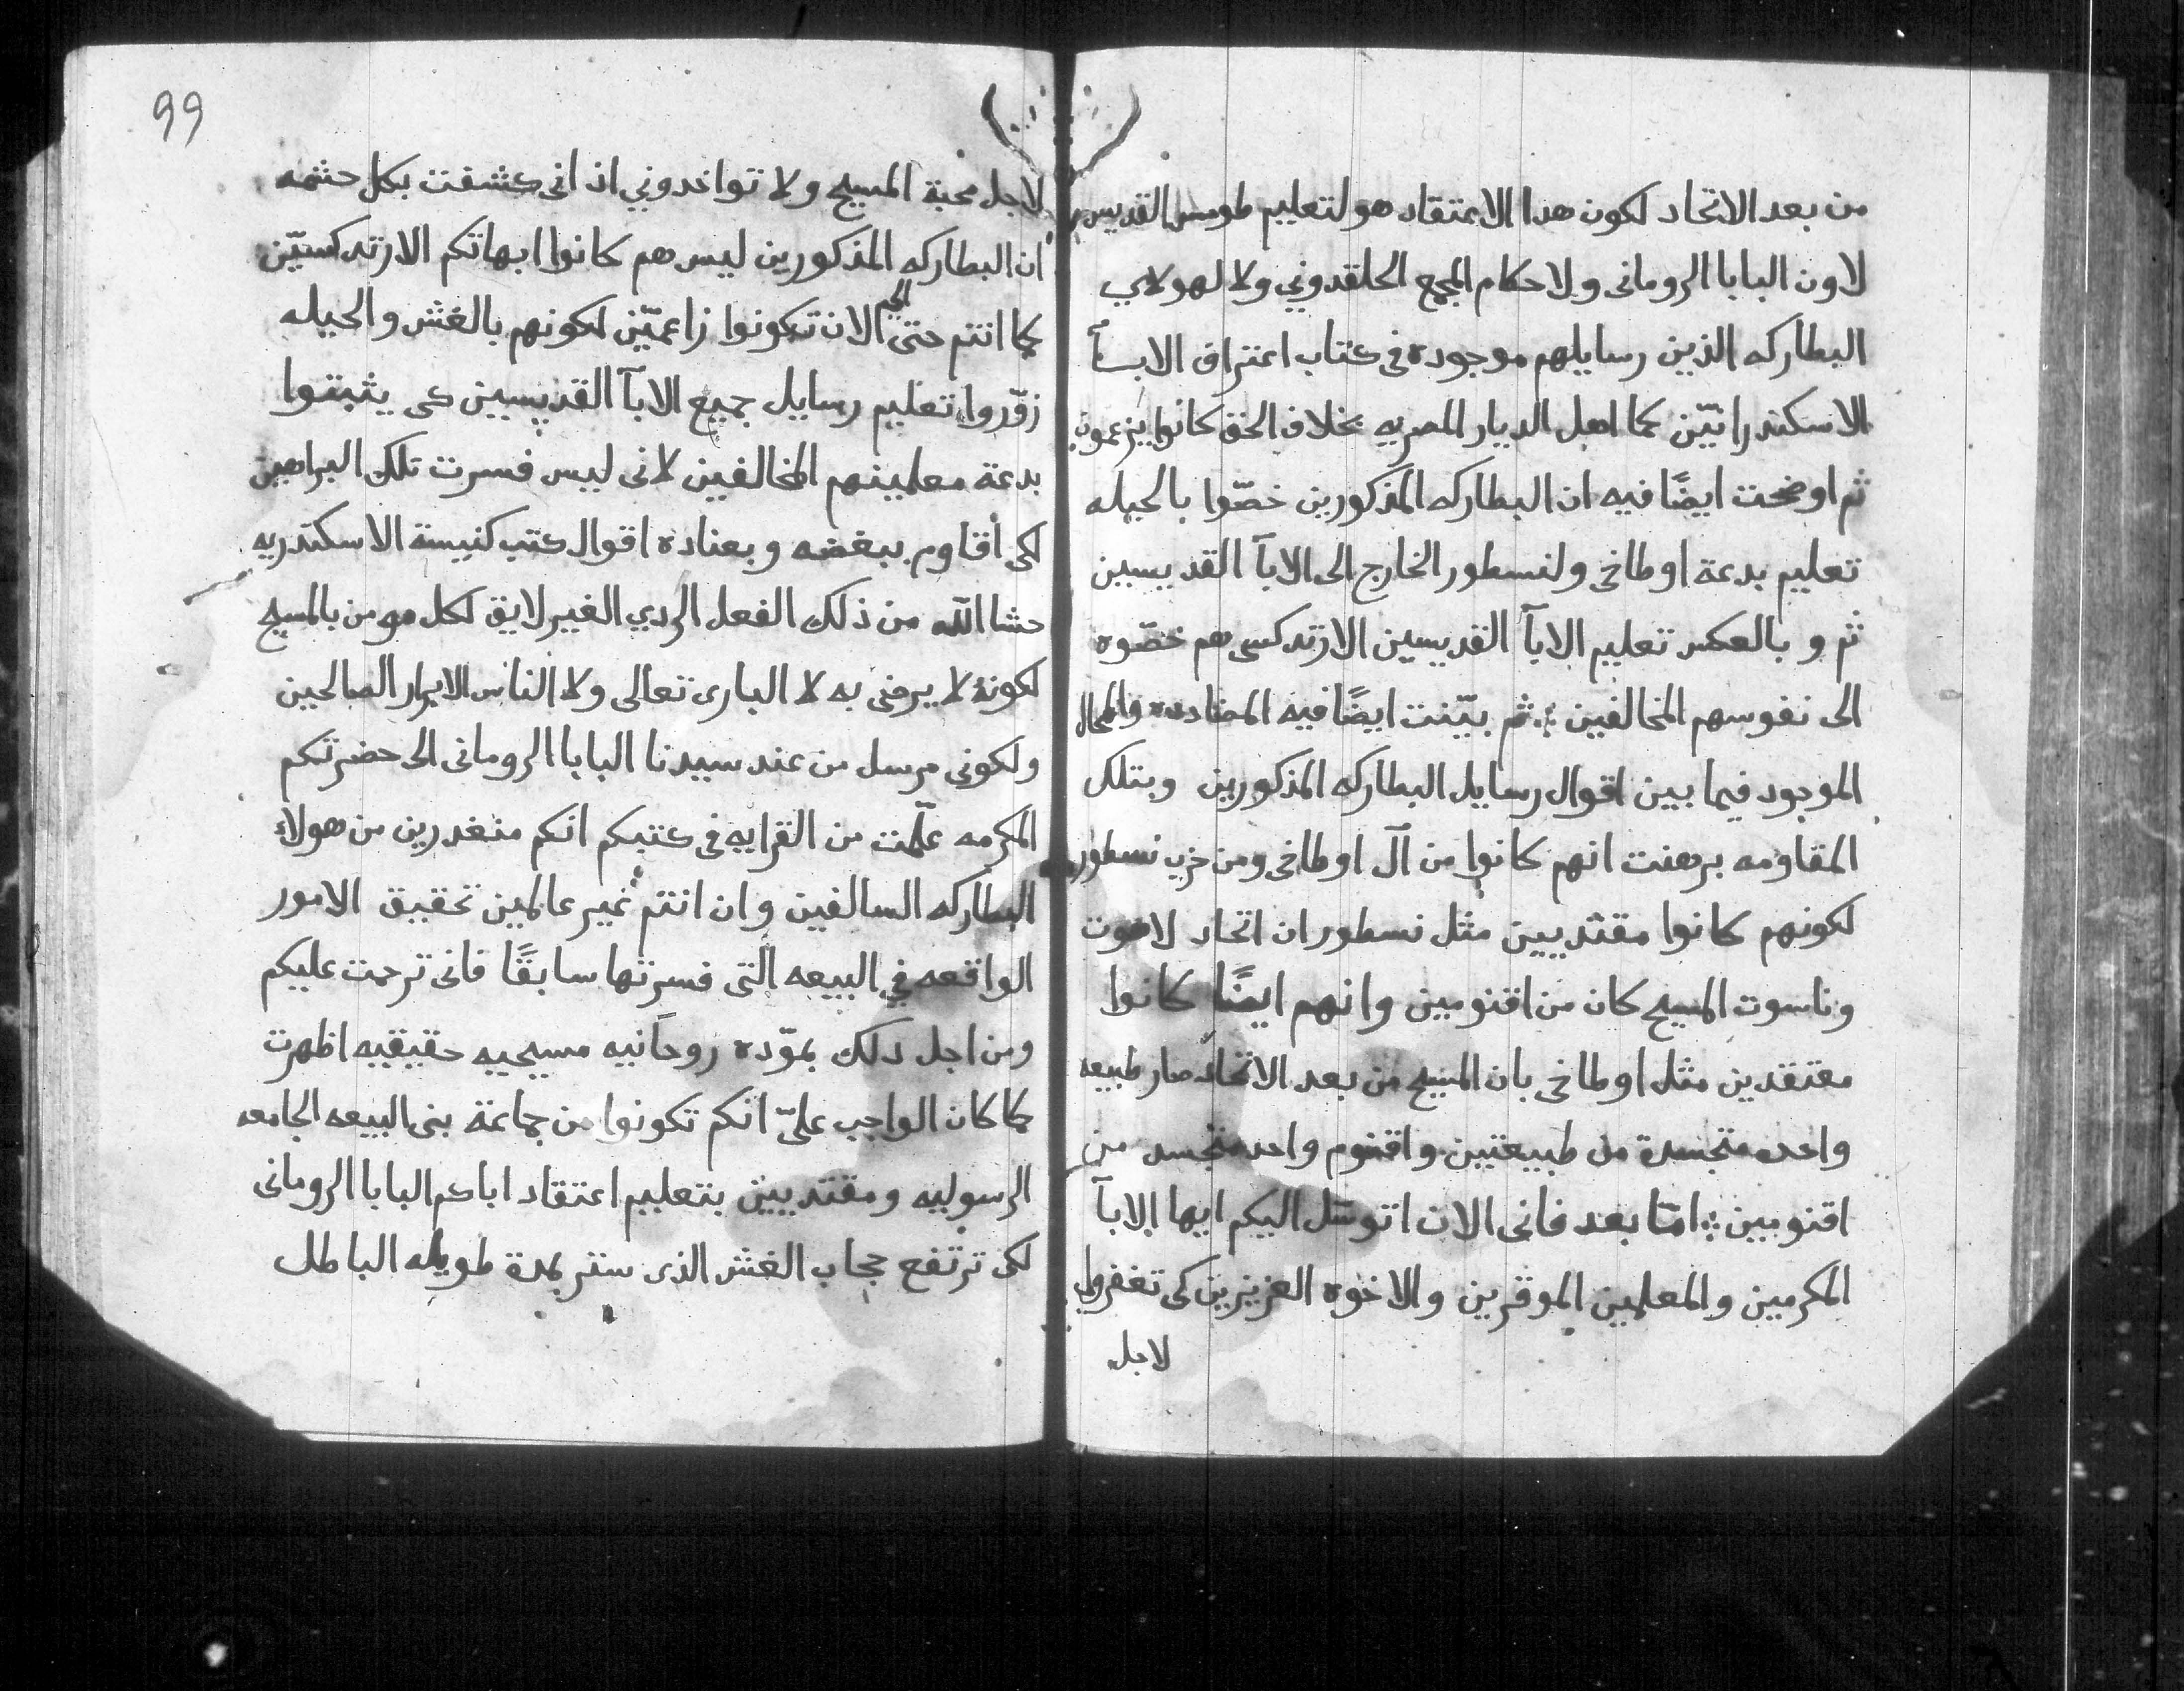 من بعد الاتحاد لكون هدا الاعتقاد هو لتعليم طومس القديس
لاون البابا الرومانى ولاحكام المجمع الخلقدوني ولا لهولاي
البطاركه الذين رسايلهم موجوده فى كتاب اعتراف الابآ
الاسكندرانيّن كما اهل الديار المصريه بخلاف الحق كانوا يزعمون
ثم اوضحت ايضًا فيه ان البطاركه المذكورين خصّوا بالحيله
تعليم بدعة اوطاخى ولنسطور الخارج الى الابآ القديسين
ثم و بالعكس تعليم الابآ القديسين الارتدكسى هم خصّوه
الى نفوسهم المخالفين ؛ ثم بيّنت ايضًا فيه المضادده والمحال
الموجود فيما بين اقوال رسايل البطاركه المذكورين وبتلك
المقاومه برهنت انهم كانوا من آل اوطاخى ومن حزب نسطور
لكونهم كانوا مقتديين مثل نسطور ان اتحاد لاهوت
وناسوت المسيح كان من اقنومين وانهم ايضًا كانوا
معتقدين مثل اوطاخى بان المسيح من بعد الاتحاد صار طبيعه
واحده متجسدة من طبيعتين واقنوم واحد متجسد من
اقنومين ؛ امّا بعد فانى الان اتوسّل اليكم ايها الابآ
المكرمين والمعلمين الموقرين والاخوه العزيزين كى تغفروا لى
لاجل
99
لاجل محبة المسيح ولا تواخدوني اذ انى كشفت بكل حشمه
ان البطاركه المذكورين ليس هم كانوا ابهاتكم الارتدكسيّن
كما انتم حتى الى الان تكونوا زاعميّن لكونهم بالغش والحيله
زوّروا تعليم رسايل جميع الابآ القديسين كى يثبتوا
بدعة معلمينهم المخالفين لانى ليس فسرت تلك البراهين
لكى أقاوم ببغضه وبعناده اقوال كتب كنيسة الاسكندريه
حشا الله من ذلك الفعل الردي الغير لايق لكل مومن بالمسيح
لكونهُ لا يرضى به لا البارى تعالى ولا الناس الابرار الصالحين
ولكونى مرسل من عند سيدنا البابا الرومانى الى حضرتكم
المكرمه علّمت من القرايه فى كتبكم انكم منغدرين من هولاء
البطاركه السالفين وان انتم غير عالمين تحقيق الامور
الواقعه في البيعه التى فسرتها سابقًا فانى ترحمت عليكم
ومن اجل دلك بموّده روحانيه مسيحيه حقيقيه اظهرت
كما كان الواجب علىّ انكم تكونوا من جماعة بنى البيعه الجامعه
الرسوليه ومقتديين بتعليم اعتقاد اباكم البابا الرومانى
لكى ترتفع حجاب الغش الذى ستر بمدة طويله الباطل